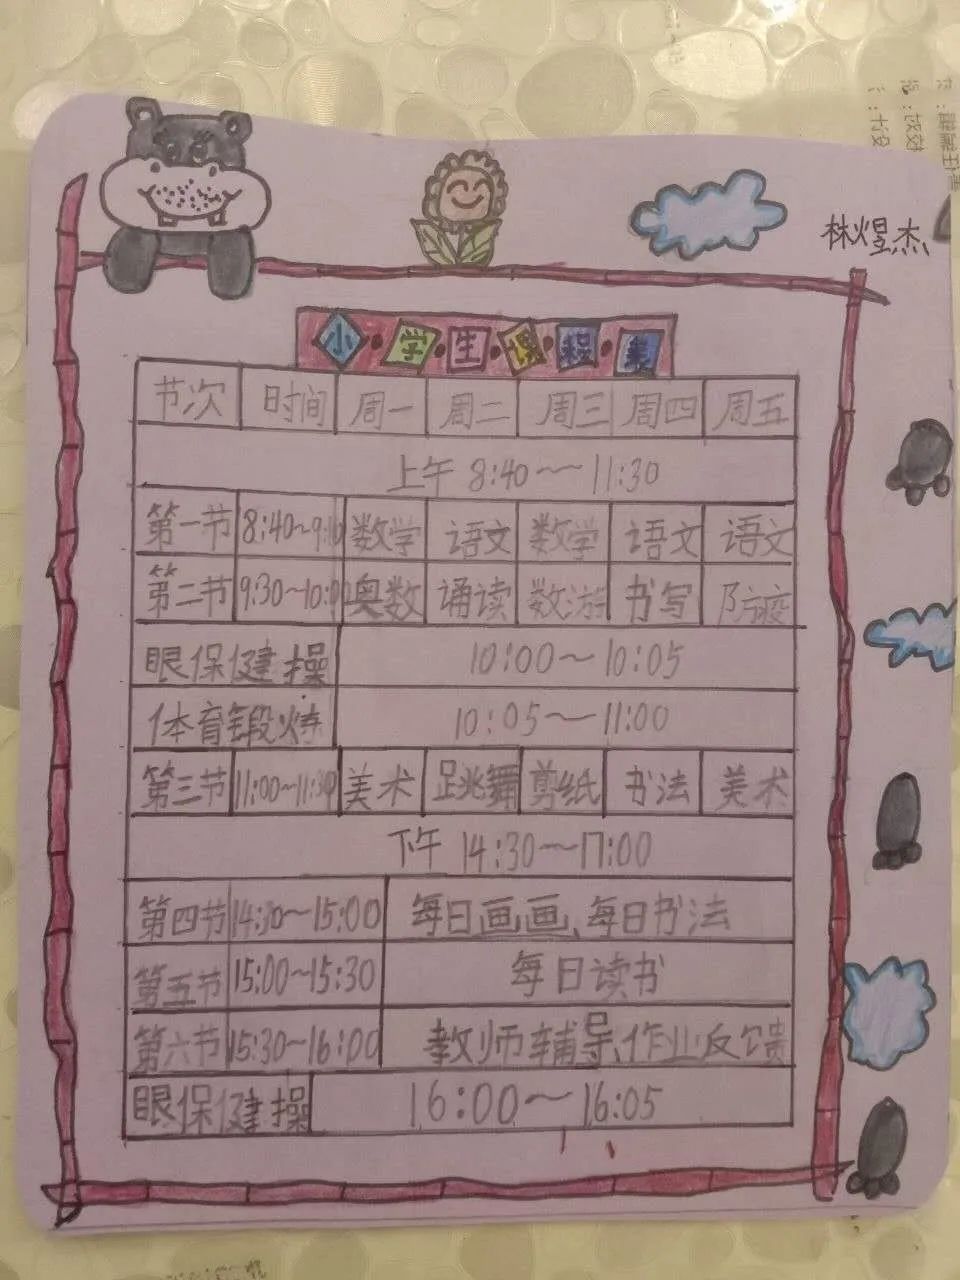 林煜杰
小·学·生·课·程·表
节次 时间 周一 周二 周三 周四 周五
上午 8:40~11:30
第一节 8:40~9:10 数学 语文 数学 语文 语文
第二节 9:30~10:00 奥数 诵读 数游 书写 防疫
眼保健操 10:00~10:05
体育锻炼 10:05~11:00
第三节 11:00~11:30 美术 跳舞 剪纸 书法 美术
下午 14:30~17:00
第四节 14:30~15:00 每日画画、每日书法
第五节 15:00~15:30 每日读书
第六节 15:30~16:00 教师辅导、作业反馈
眼保健操 16:00~16:05